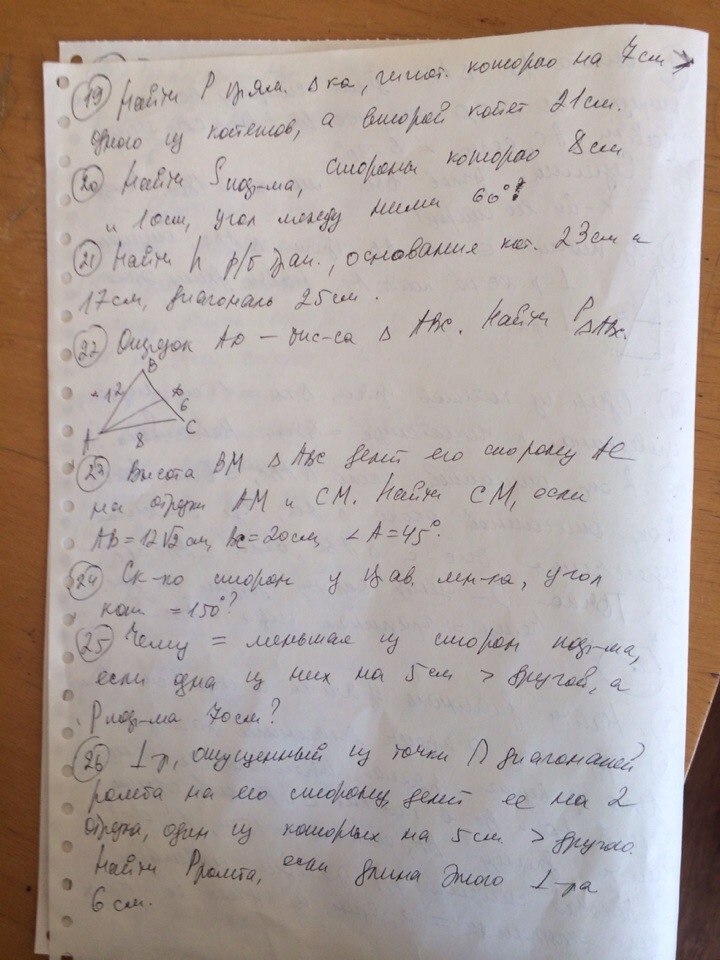 19 Найти P прям. Δка, гипот. которого на 7см >
одного из катетов, а второй катет 21см.
20 Найти Sпар-ма, стороны которого 8см
и 10см, угол между ними 60°?
21 Найти h р/б трап., основания кот. 23см и
17см, диагональ 25см.
22 Отрезок AD – бис-са Δ ABC. Найти PΔABC.
B
12
6
A
8
C
23 Высота BM Δ ABC делит его сторону AC
на отрезки AM и CM. Найти CM, если
AB=12√2 см, BC=20см, ∠A=45°.
24 Ск-ко сторон у прав. мн-ка, угол
кот =150°?
25 Чему = меньшая из сторон пар-ма,
если одна из них на 5см > другой, а
Pпар-ма 70см?
26 ⊥-р, опущенный из точки ∩ диагоналей
ромба на его сторону, делит ее на 2
отрезка, один из которых на 5см > другого.
Найти Pромба, если длина этого ⊥-ра
6 см.